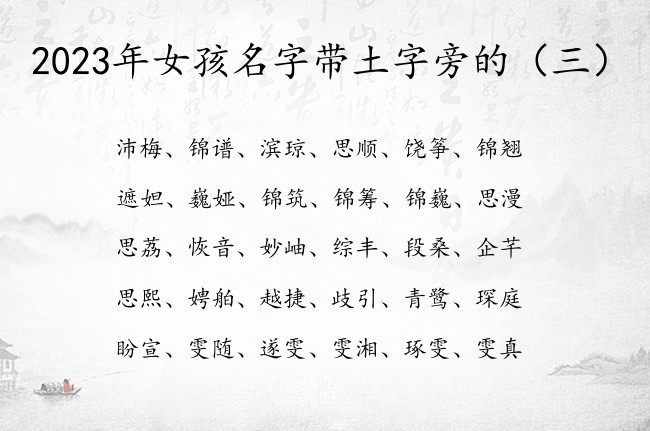 2023年女孩名字带土字旁的（三）
沛梅、锦谱、滨琼、思顺、饶筝、锦翘
遮妲、巍娅、锦筑、锦筹、锦巍、思漫
思荔、恢音、妙岫、综丰、段桑、企芊
思熙、娉舶、越捷、歧引、青鹭、琛庭
盼宣、雯随、遂雯、雯湘、琢雯、雯真